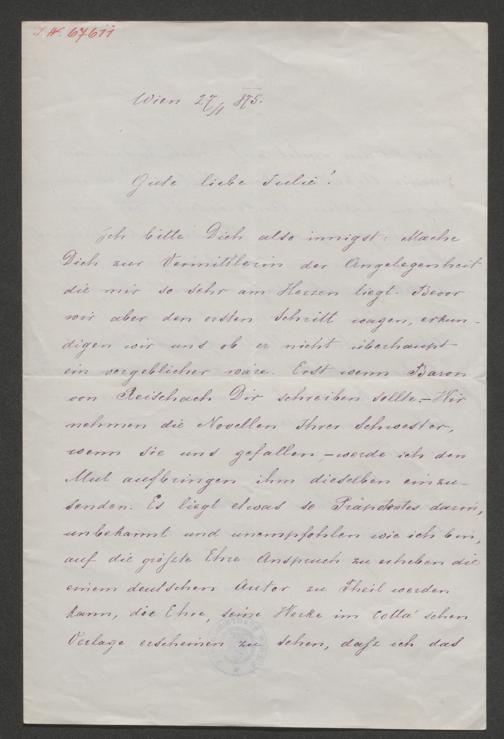 I.N. 67611
Wien 27/1 875.
Gute liebe Julie!
Ich bitte Dich also innigst: Mache
Dich zur Vermittlerin der Angelegenheit
die mir so sehr am Herzen liegt. Bevor
wir aber den ersten Schritt wagen, erkun-
digen wir uns ob er nicht überhaupt
ein vergeblicher wäre. Erst wenn Baron
von Reischach Dir schreiben sollte – Wir
nehmen die Novellen Ihrer Schwester,
wenn sie uns gefallen, – werde ich den
Mut aufbringen ihm dieselben einzu-
senden. Es liegt etwas so Prätentöses darin,
unbekannt und unempfohlen wie ich bin,
auf die größte Ehre Anspruch zu erheben die
einem deutschen Autor zu Theil werden
kann, die Ehre, seine Werke im Cotta'schen
Verlage erscheinen zu sehen, daß ich das